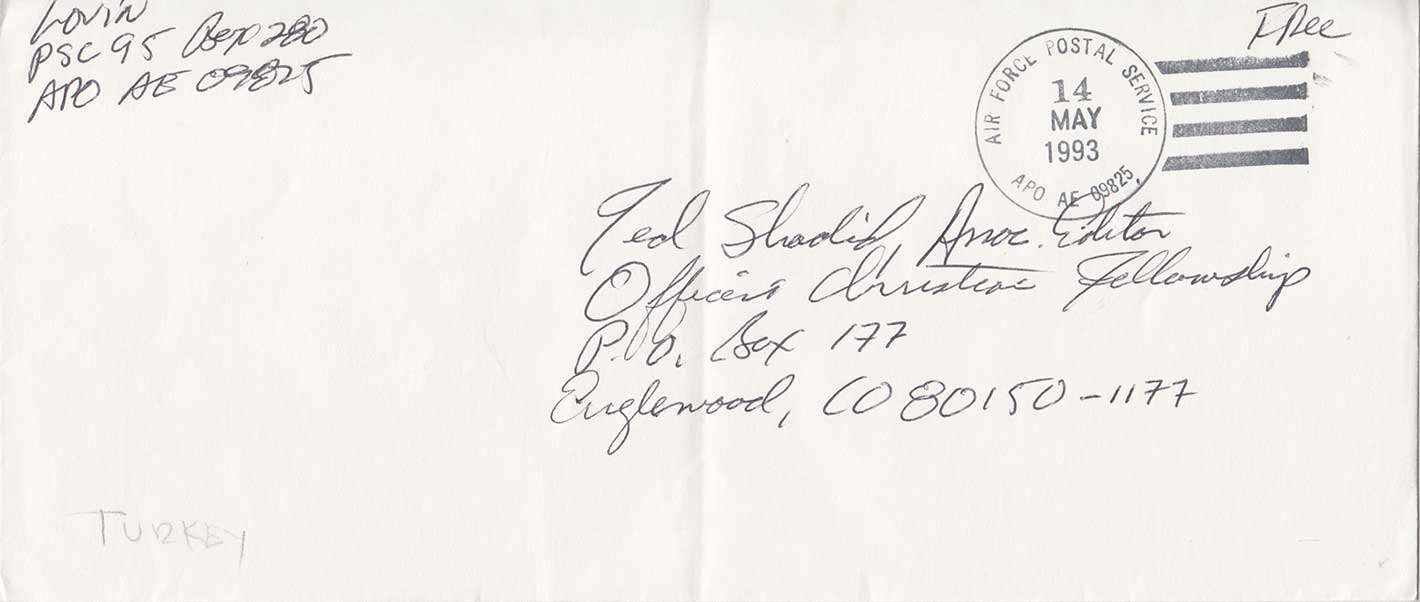 Lovin
PSC 95 Box 280
APO AE 09825
Free
AIR FORCE POSTAL SERVICE
14
MAY
1993
APO AE 09825
Ted Shadid, Assoc. Editor
Officers Christian Fellowship
P.O. Box 177
Englewood, CO 80150-1177
TURKEY